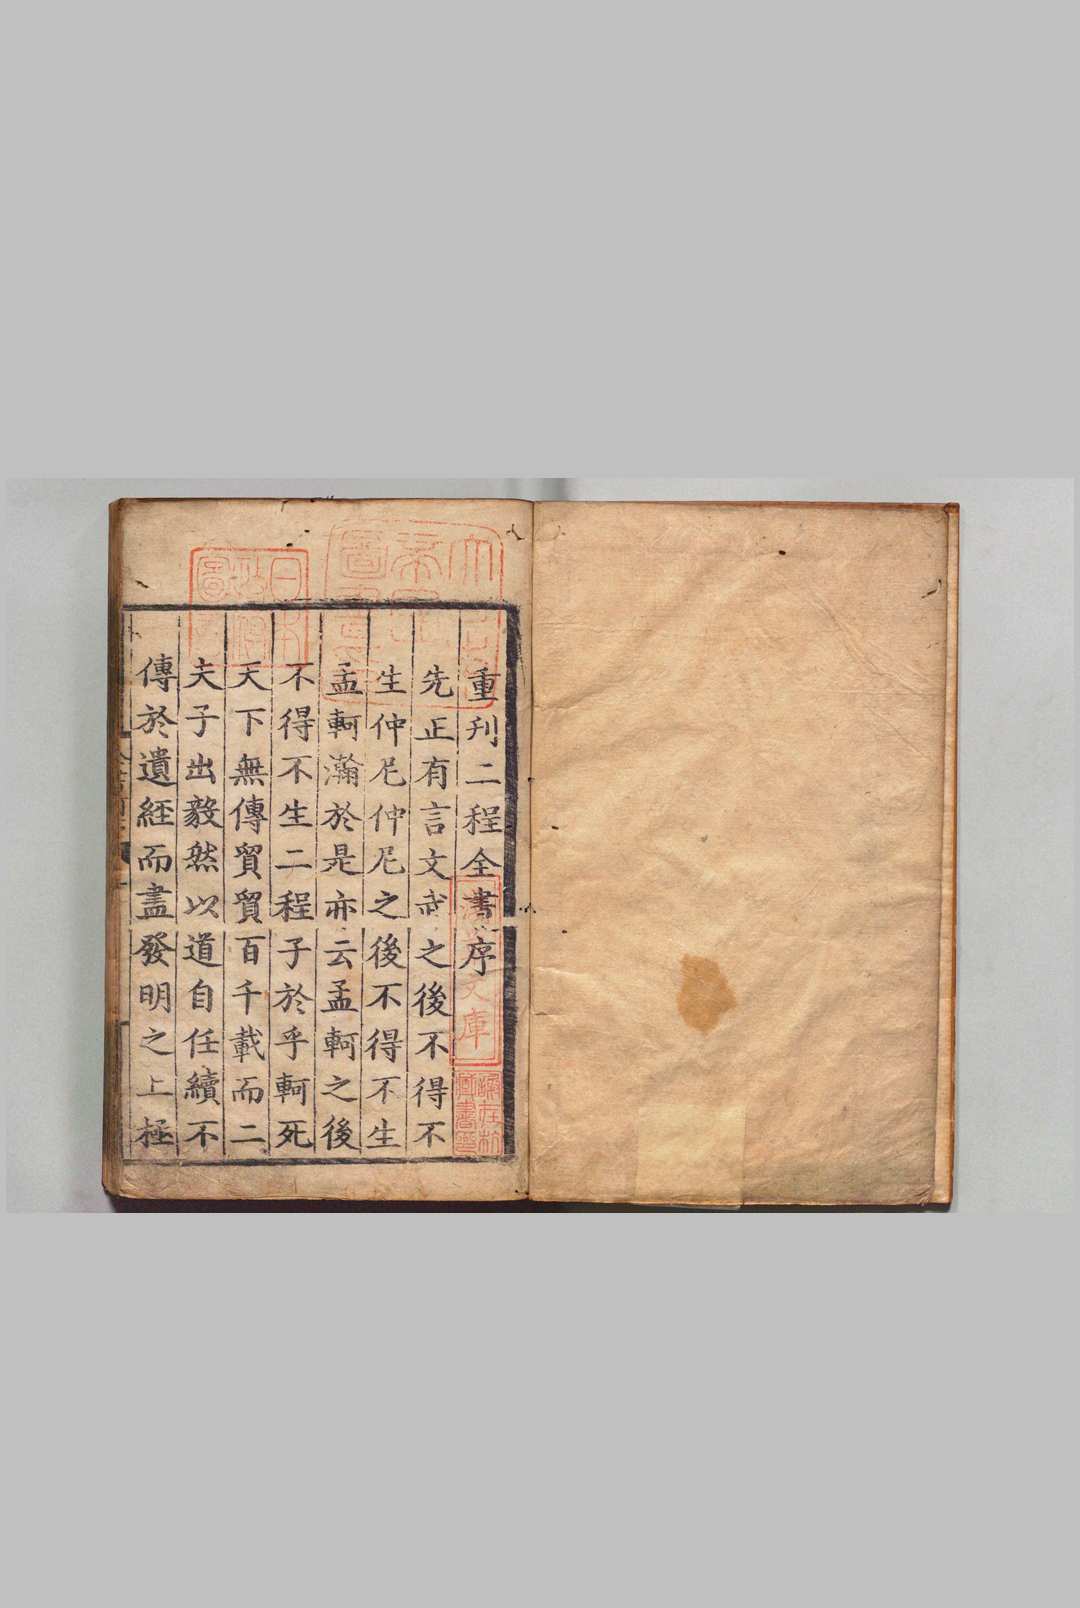 重刊二程全書序
先正有言文武之後不得不
生仲尼仲尼之後不得不生
孟軻瀚於是亦云孟軻之後
不得不生二程子於乎軻死
天下無傳貿貿百千載而二
夫子出毅然以道自任續不
傳於遺經而盡發明之上極
文庫
日本